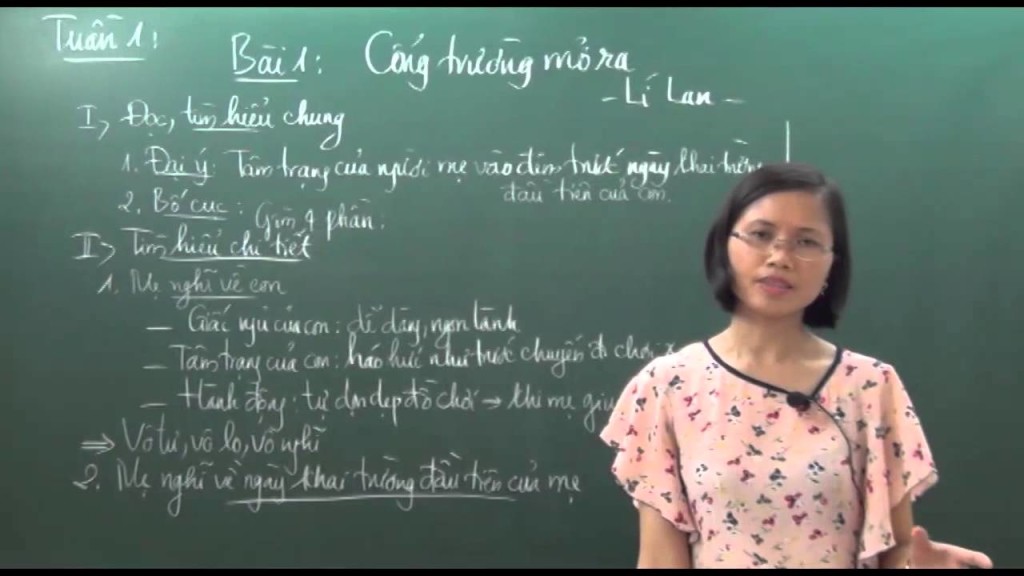 Tuần 1:
Bài 1: Cổng trường mở ra
- Lí Lan -
I, Đọc, tìm hiểu chung
1. Đại ý: Tâm trạng của người mẹ vào đêm trước ngày khai trường
đầu tiên của con.
2. Bố cục: Gồm phần.
II, Tìm hiểu chi tiết
1. Mẹ nghĩ về con
- Giấc ngủ của con: dễ dàng, ngon lành
- Tâm trạng của con: háo hức như trước chuyến đi chơi
- Hành động: tự dọn dẹp đồ chơi → khi mẹ giú
⇒ Vô tư, vô lo, vô nghĩ
2. Mẹ nghĩ về ngày khai trường đầu tiên của mẹ